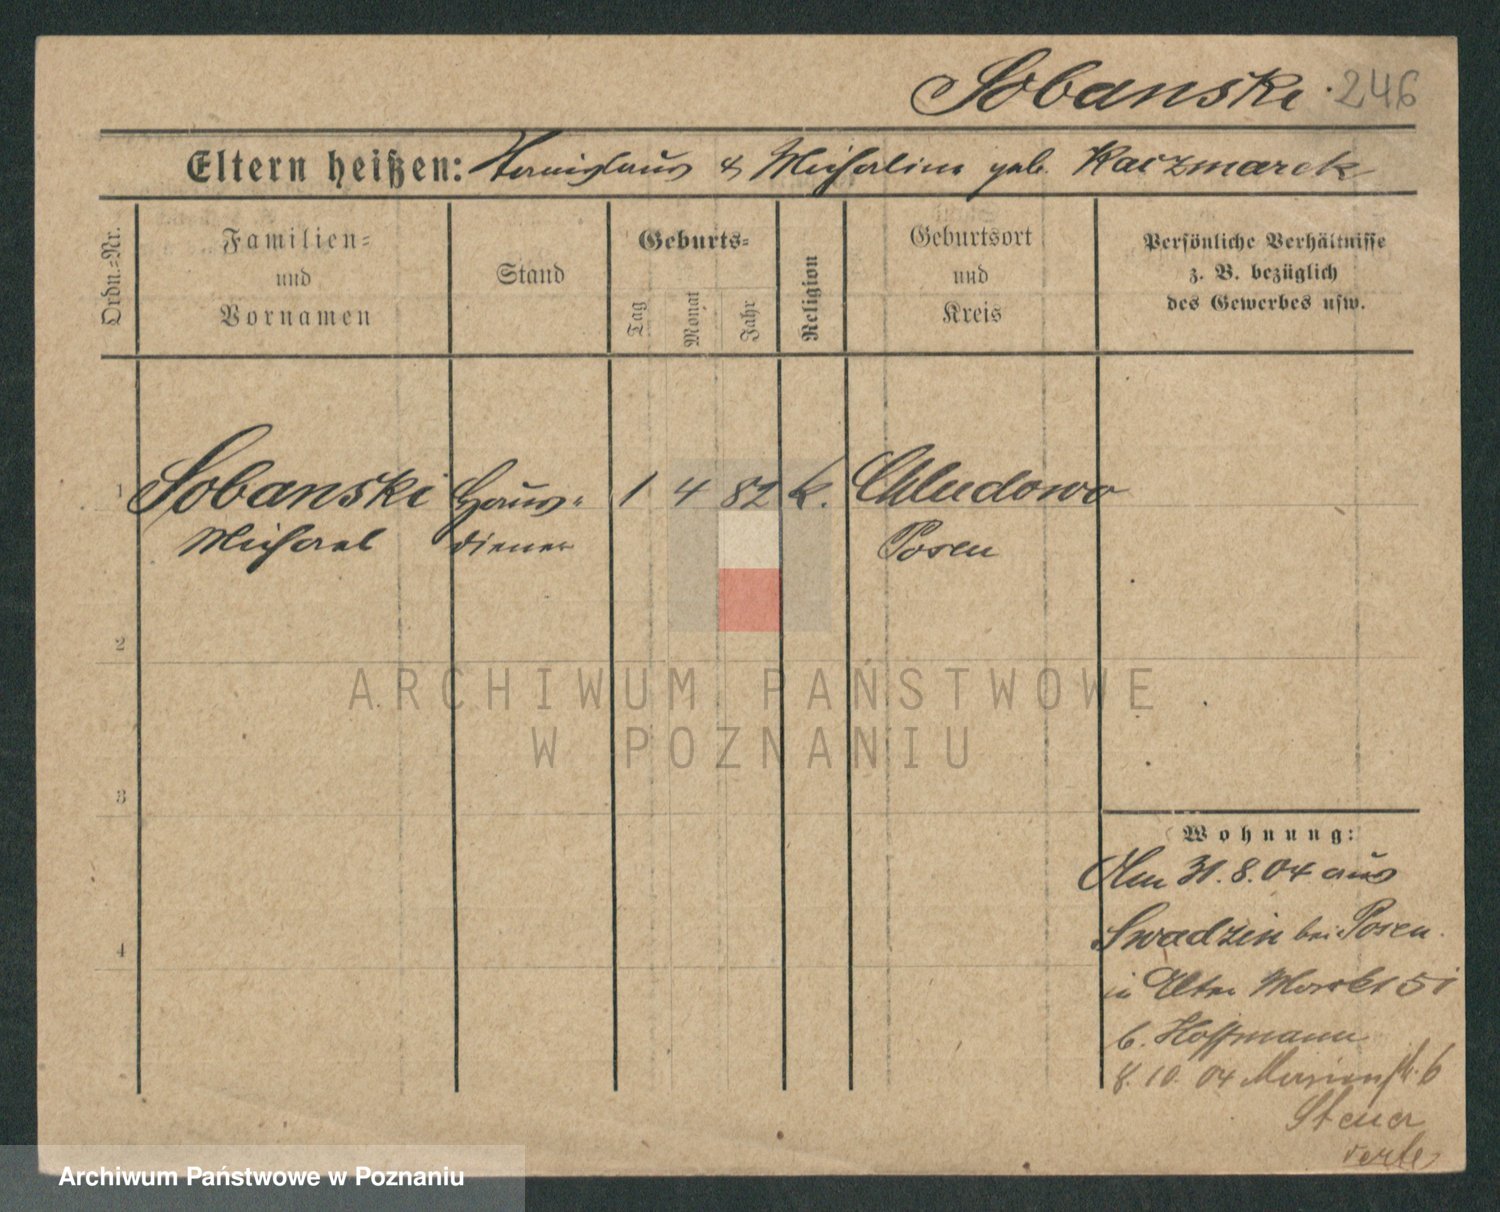 Sobanski. 246
Eltern heißen: Stanislaus & Michalina geb. Kaczmarek
Ordn.=Nr.
Familien=
und
Vornamen
Stand
Geburts=
Tag
Monat
Jahr
Religion
Geburtsort
und
Kreis
Persönliche Verhältnisse
z. B. bezüglich
des Gewerbes usw.
1 Sobanski Haus= 1 4 82 k. Chludowo
Michael diener Posen
2
3
4
ARCHIWUM PAŃSTWOWE
W POZNANIU
Wohnung:
Am 31.8.04 aus
Swadzin bei Posen.
in Alter Markt 51
b. Hoffmann
8.10.04 str. 6
Steuer
Archiwum Państwowe w Poznaniu